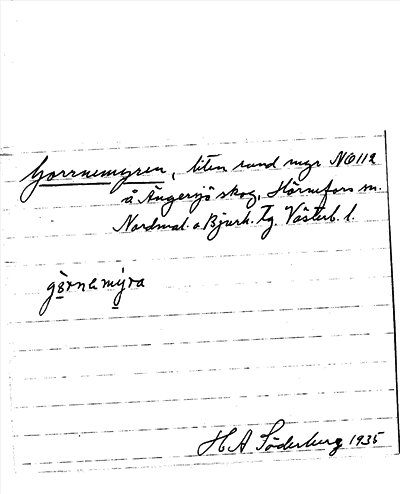 Gorrnemyren, liten rund myr NO 112
å Ängersjö skog, Hörnefors sn.
Nordmal. o Bjurh. tg. Västerb. l.
górnemýra
H A Söderberg 1935